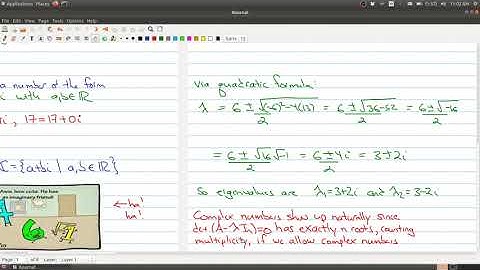 Applications Places
11:02 AM
Xournal
File Edit View Page Tools Options Help
Sans 12
a number of the form
with a,b∈ℝ
, 17=17+0i
ℂ={a+bi | a,b∈ℝ}
Aww, how cute. He has
an imaginary friend!
← ha!
ha!
via quadratic formula:
λ = 6±√(-6)²-4(13) / 2 = 6±√36-52 / 2 = 6±√-16 / 2
= 6±√16√-1 / 2 = 6±4i / 2 = 3±2i
So eigenvalues are λ₁=3+2i and λ₂=3-2i
Complex numbers show up naturally since
det(A-λIₙ)=0 has exactly n roots, counting
multiplicity, if we allow complex numbers
Page
Layer: Layer 1
Xournal